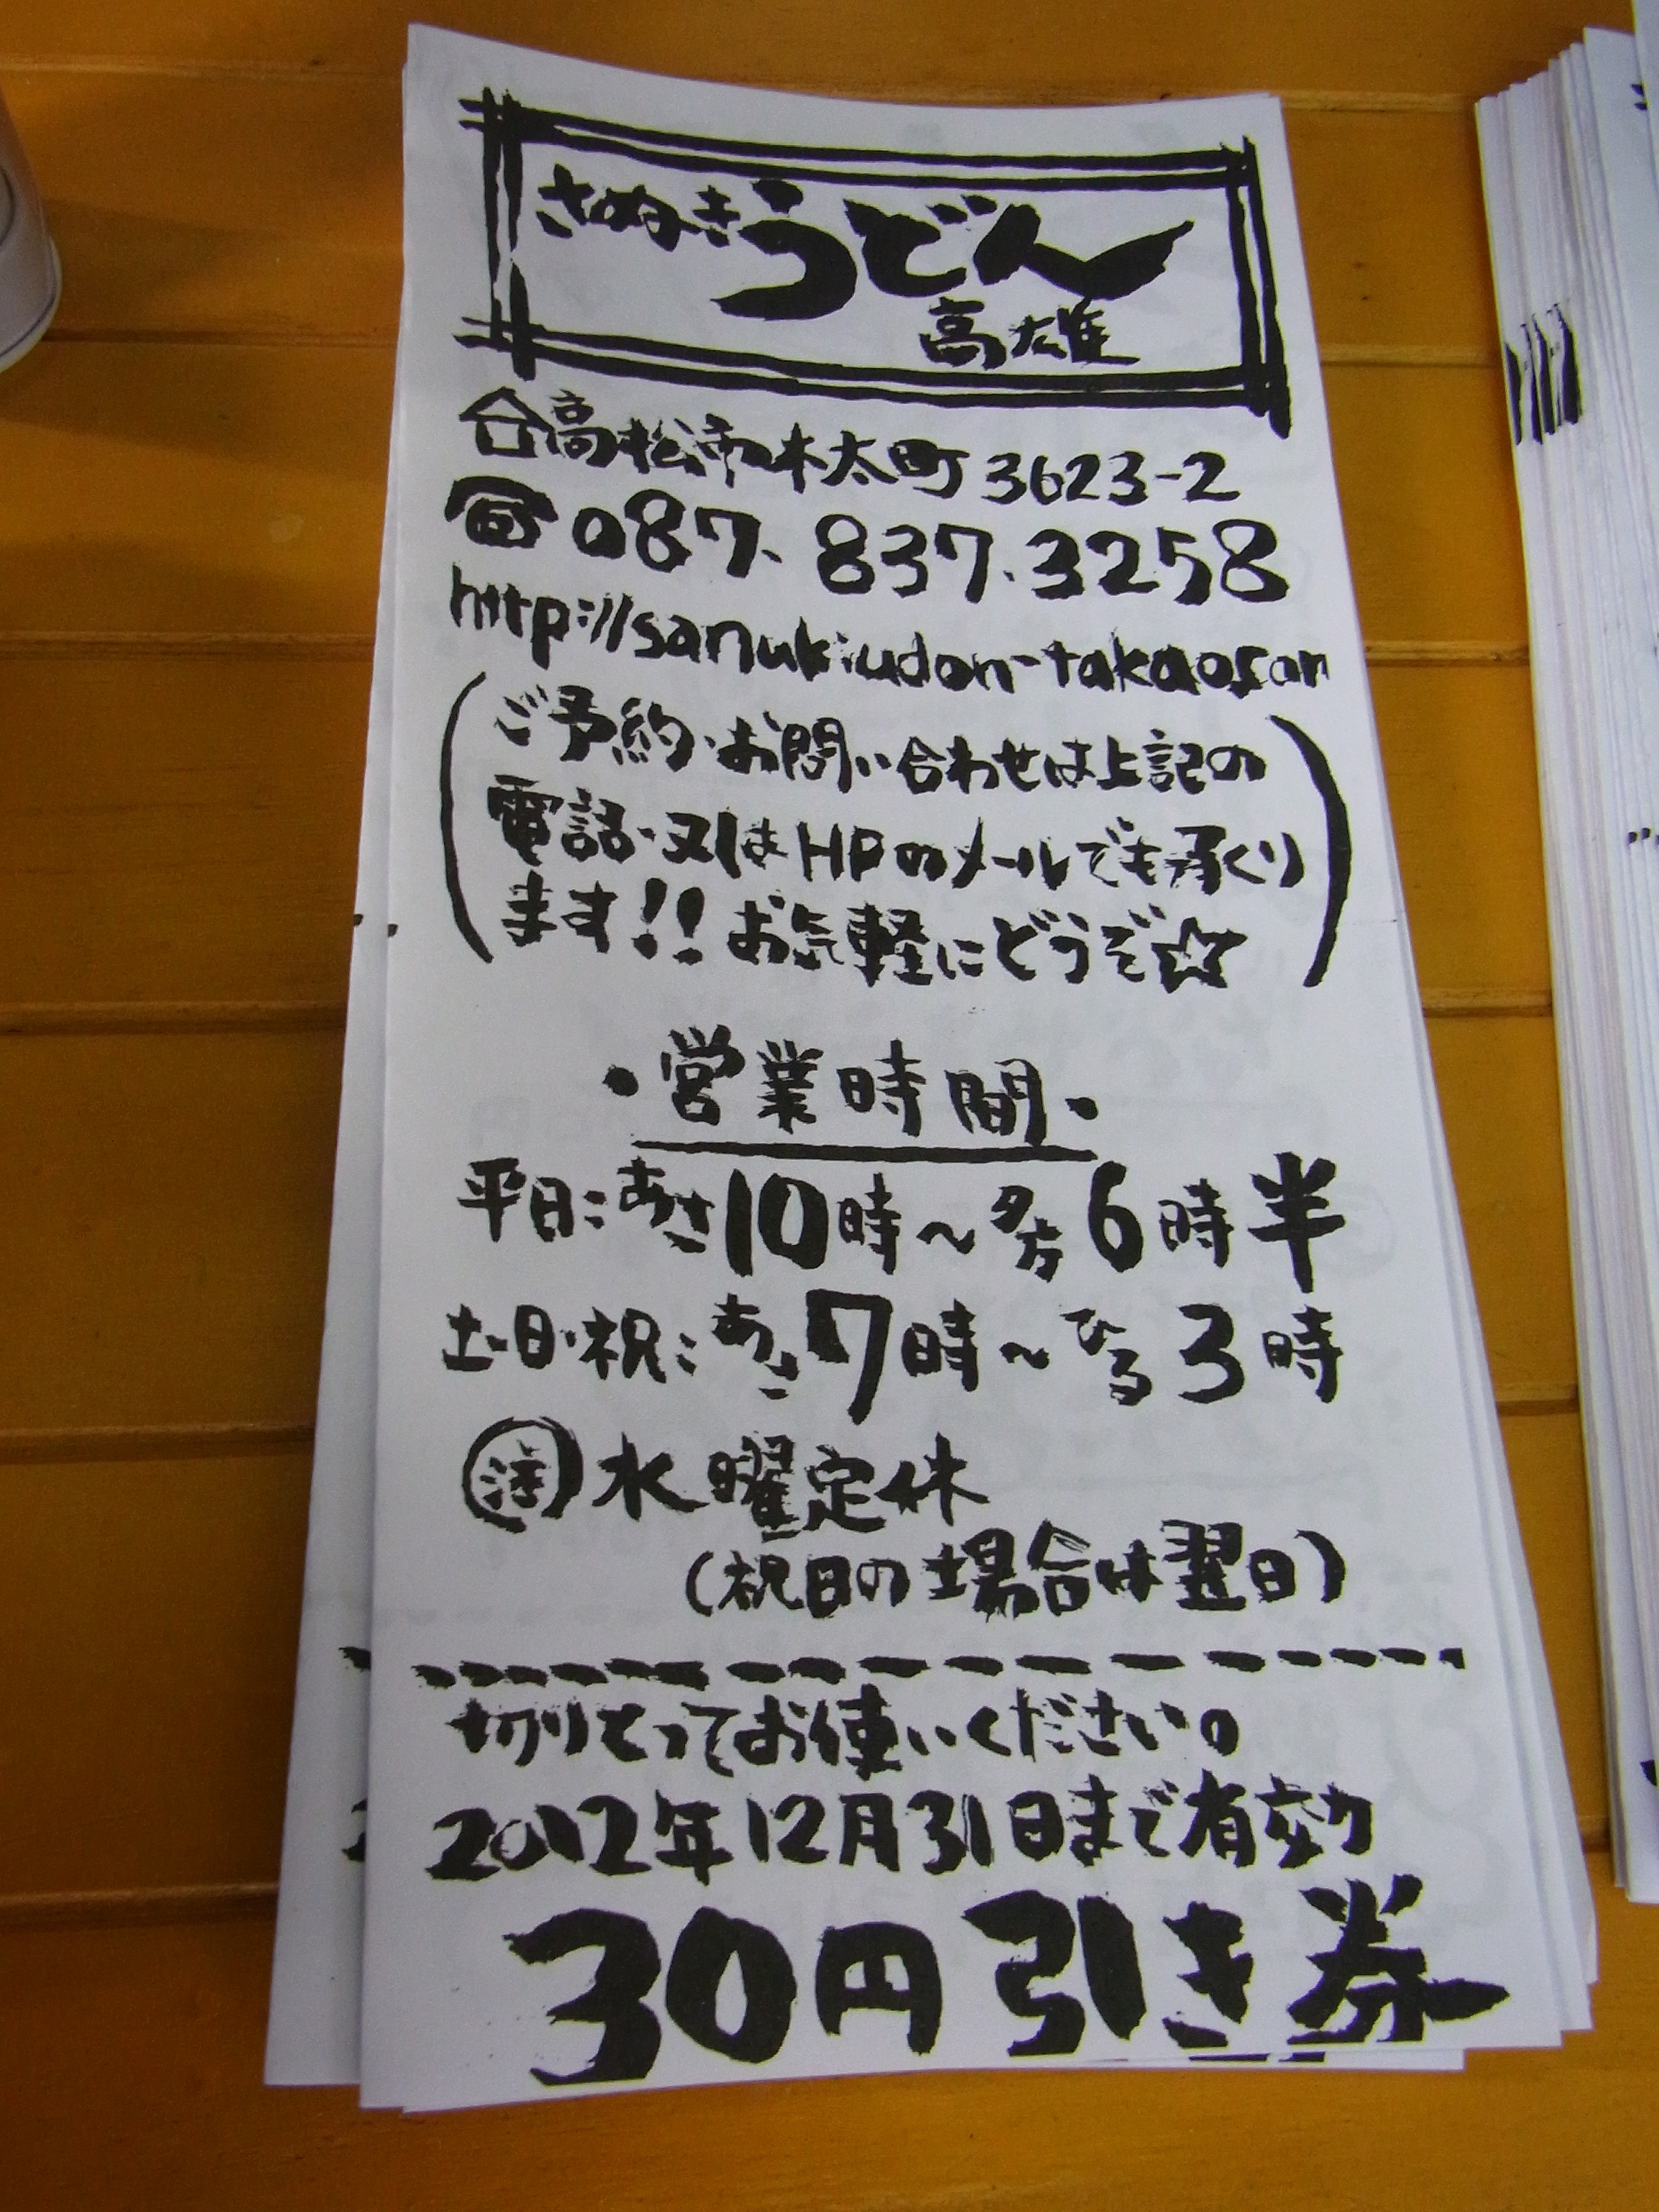 さぬきうどん
高雄
高松市木太町3623-2
☎087-837-3258
http://sanukiudon-takao.com
(ご予約・お問い合わせは上記の
電話・又はHPのメールでも承くり
ます!!お気軽にどうぞ☆)
・営業時間・
平日:あさ10時~夕方6時半
土・日・祝:あさ7時~ひる3時
㊟水曜定休
(祝日の場合は翌日)
切りとってお使いください。
2012年12月31日まで有効
30円引き券